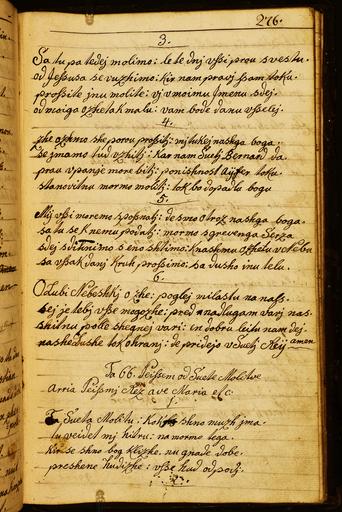 276.
3.
Sa tu pa tedej molimo: te te dnj vssi prou svestu.
od Jessusa se vuzhimo: kir nam pravj sam toku.
prossite jnu molite: vj v moimu Jmenu svej.
od moiga ozhetak malu: vam bode danu vsselej.
4.
zhe ozhmo ske porou prossitj: mj tukej nashga boga.
se jmamo tud vzhitj: Kar nam Suetj Bernard da.
prau vpanje more bitj: ponishnost aufer toku.
stanovitnu mormo molitj: tok bo dopadlu bogu
5.
Mj vssi muremo spossnatj: de smo otroz nashga boga
sa tu se k nemu podatj: mormo sgrevenga Serza
svej sdihnimo s eno shtimo: knashmu Ozhetu v Nebu
sa vssakdanj Kruh prossimo: sa dusho inu telu.
6.
O Lubi Nebeshkj Ozhe: poglej milastu na nass.
sej je tebj vsse mogozhe: pred nadlugam varj nas.
skuhnu polle shegnej vari: en dobru leitu nam dej
nashe dushe tok ohranj: de pridejo v Suetj Rej amen
Ta 66. Peissem od Suete Molitve
Arria Peissmj Nez ave Maria etc:
1.
Ta Sueta Molitu: Kok sshno muzh jma.
tu veidet mj hitru: na mormo tega.
Kir se shno bog klizhe. nu gnade dobe.
preshene hudizhe: vsse hud odpotj.
2.